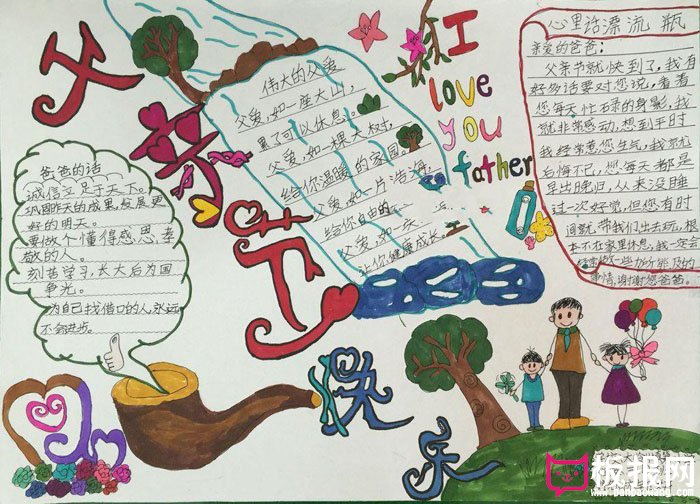 父亲节
快乐
I
love
you
father
心里话漂流瓶
亲爱的爸爸:
父亲节就快到了,我有
好多话要对您说,看着
您每天忙碌的身影,我
就非常感动,想到平时
我经常惹您生气,我就
后悔不已,您每天都是
早出晚归,从来没睡
过一次好觉,但您有时
间就带我们出去玩,根
本不在家里休息,我一定会
做一些力所能及的
事情,谢谢您爸爸。
伟大的父爱
父爱,如一座大山,
累了可以休息。
父爱,如一棵大树,
给你温暖的家园。
父爱,如一片浩海,
给你自由的
父爱,如一
让你健康成长。
爸爸的话
诚信立足于天下。
巩固昨天的成果,发展更
好的明天。
要做个懂得感恩、孝
敬的人。
刻苦学习,长大后为国
争光。
为自己找借口的人永远
不会进步。
板报网
www.banbaowang.com